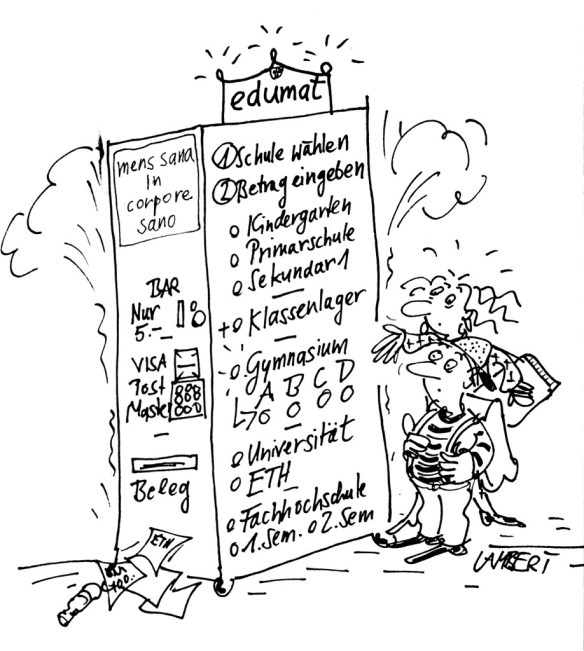 edumat
mens sana
in
corpore
sano
BAR
Nur
5.-
VISA
Post
Master
Beleg
① Schule wählen
② Betrag eingeben
Kindergarten
Primarschule
Sekundar 1
+ Klassenlager
Gymnasium
A B C D
Universität
ETH
Fachhochschule
1. Sem. 2. Sem
ETH
LAMBERT